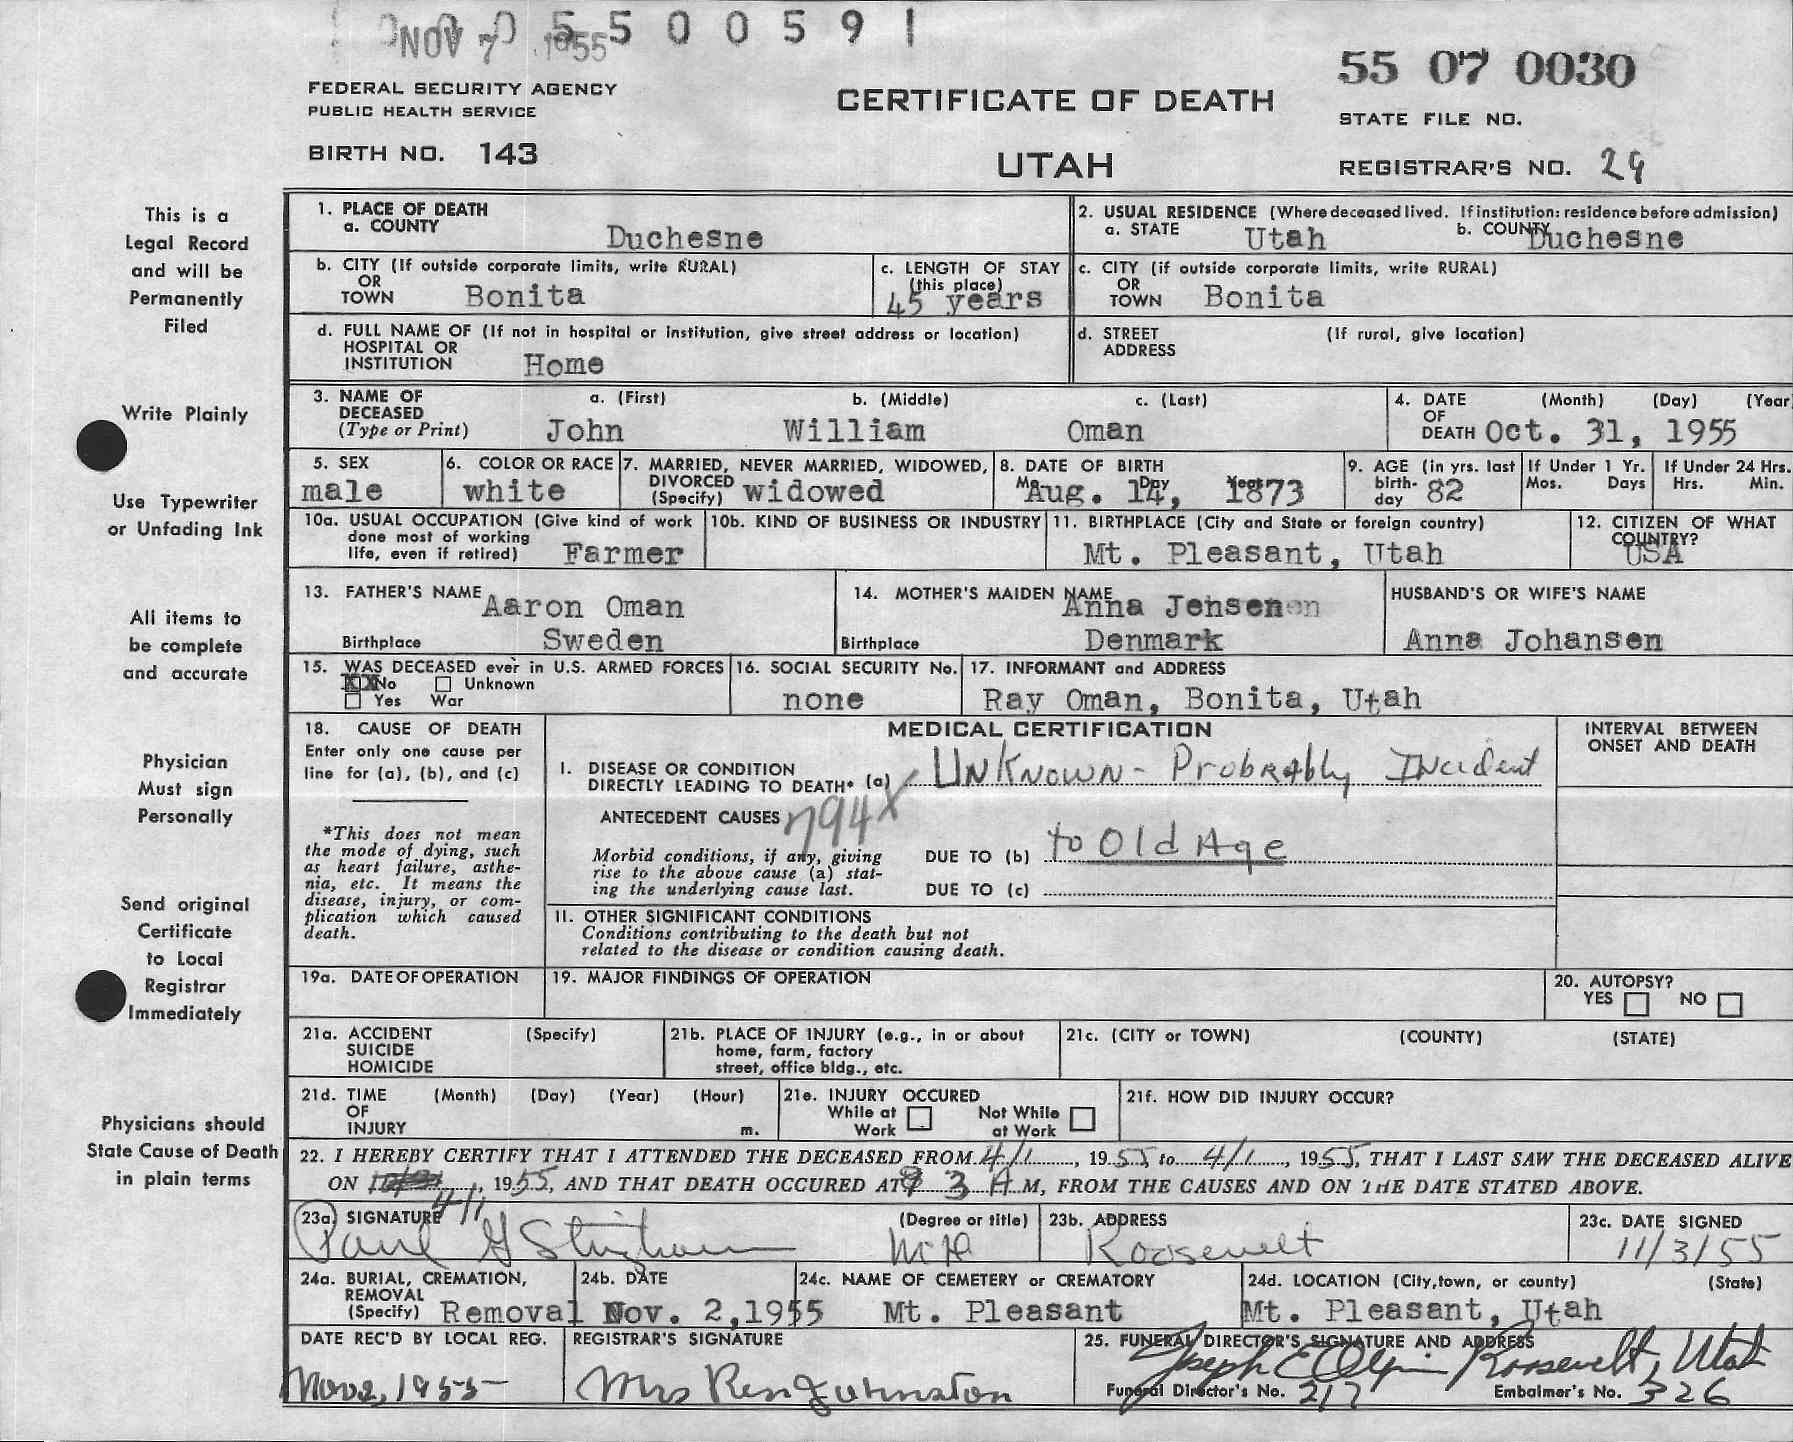 NOV 7 1955
5 5 0 0 5 9 1
55 07 0030
FEDERAL SECURITY AGENCY
PUBLIC HEALTH SERVICE
CERTIFICATE OF DEATH
STATE FILE NO.
BIRTH NO. 143
UTAH
REGISTRAR'S NO. 29
This is a
Legal Record
and will be
Permanently
Filed
Write Plainly
Use Typewriter
or Unfading Ink
All items to
be complete
and accurate
Physician
Must sign
Personally
Send original
Certificate
to Local
Registrar
Immediately
Physicians should
State Cause of Death
in plain terms
1. PLACE OF DEATH
a. COUNTY
Duchesne
2. USUAL RESIDENCE (Where deceased lived. If institution: residence before admission)
a. STATE Utah b. COUNTY Duchesne
b. CITY (If outside corporate limits, write RURAL)
OR
TOWN Bonita
c. LENGTH OF STAY
(this place)
45 years
c. CITY (if outside corporate limits, write RURAL)
OR
TOWN Bonita
d. FULL NAME OF (If not in hospital or institution, give street address or location)
HOSPITAL OR
INSTITUTION Home
d. STREET (If rural, give location)
ADDRESS
3. NAME OF a. (First) b. (Middle) c. (Last)
DECEASED
(Type or Print) John William Oman
4. DATE (Month) (Day) (Year
OF
DEATH Oct. 31, 1955
5. SEX
male
6. COLOR OR RACE
white
7. MARRIED, NEVER MARRIED, WIDOWED,
DIVORCED
(Specify) widowed
8. DATE OF BIRTH
Mo. Day Year
Aug. 14, 1873
9. AGE (in yrs. last
birth-
day 82
If Under 1 Yr.
Mos. Days
If Under 24 Hrs.
Hrs. Min.
10a. USUAL OCCUPATION (Give kind of work
done most of working
life, even if retired) Farmer
10b. KIND OF BUSINESS OR INDUSTRY
11. BIRTHPLACE (City and State or foreign country)
Mt. Pleasant, Utah
12. CITIZEN OF WHAT
COUNTRY?
USA
13. FATHER'S NAME Aaron Oman
Birthplace Sweden
14. MOTHER'S MAIDEN NAME Anna Jensen
Birthplace Denmark
HUSBAND'S OR WIFE'S NAME
Anna Johansen
15. WAS DECEASED ever in U.S. ARMED FORCES
XX No Unknown
Yes War
16. SOCIAL SECURITY No.
none
17. INFORMANT and ADDRESS
Ray Oman, Bonita, Utah
18. CAUSE OF DEATH
Enter only one cause per
line for (a), (b), and (c)
*This does not mean
the mode of dying, such
as heart failure, asthe-
nia, etc. It means the
disease, injury, or com-
plication which caused
death.
MEDICAL CERTIFICATION
I. DISEASE OR CONDITION
DIRECTLY LEADING TO DEATH* (a) Unknown - Probrably Incident
ANTECEDENT CAUSES 794X
Morbid conditions, if any, giving
rise to the above cause (a) stat-
ing the underlying cause last.
DUE TO (b) to Old Age
DUE TO (c)
II. OTHER SIGNIFICANT CONDITIONS
Conditions contributing to the death but not
related to the disease or condition causing death.
INTERVAL BETWEEN
ONSET AND DEATH
19a. DATE OF OPERATION
19. MAJOR FINDINGS OF OPERATION
20. AUTOPSY?
YES NO
21a. ACCIDENT (Specify)
SUICIDE
HOMICIDE
21b. PLACE OF INJURY (e.g., in or about
home, farm, factory
street, office bldg., etc.
21c. (CITY or TOWN) (COUNTY) (STATE)
21d. TIME (Month) (Day) (Year) (Hour)
OF
INJURY m.
21e. INJURY OCCURED
While at Work
Not While at Work
21f. HOW DID INJURY OCCUR?
22. I HEREBY CERTIFY THAT I ATTENDED THE DECEASED FROM 4/1, 1955 to 4/1, 1955, THAT I LAST SAW THE DECEASED ALIVE
ON 4/1, 1955, AND THAT DEATH OCCURED AT 3 A M, FROM THE CAUSES AND ON THE DATE STATED ABOVE.
23a. SIGNATURE (Degree or title)
Paul G Stringham MD
23b. ADDRESS
Roosevelt
23c. DATE SIGNED
11/3/55
24a. BURIAL, CREMATION,
REMOVAL
(Specify) Removal
24b. DATE
Nov. 2, 1955
24c. NAME OF CEMETERY or CREMATORY
Mt. Pleasant
24d. LOCATION (City, town, or county) (State)
Mt. Pleasant, Utah
DATE REC'D BY LOCAL REG.
Nov 2, 1955
REGISTRAR'S SIGNATURE
Mrs Ren Johnston
25. FUNERAL DIRECTOR'S SIGNATURE AND ADDRESS
Joseph E Olpin Roosevelt, Utah
Funeral Director's No. 217 Embalmer's No. 326